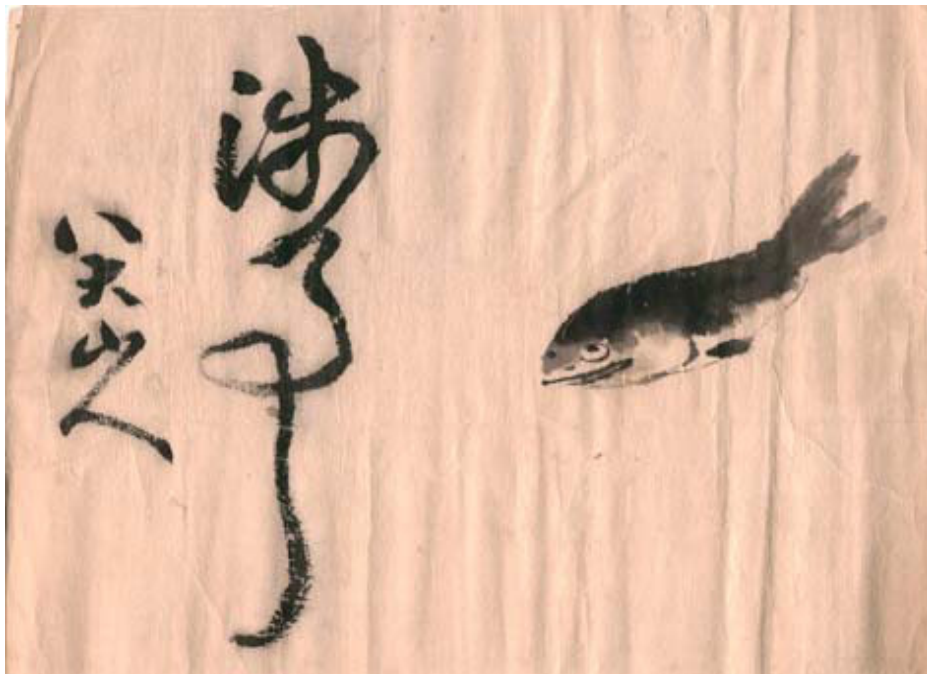 涉事
八大山人